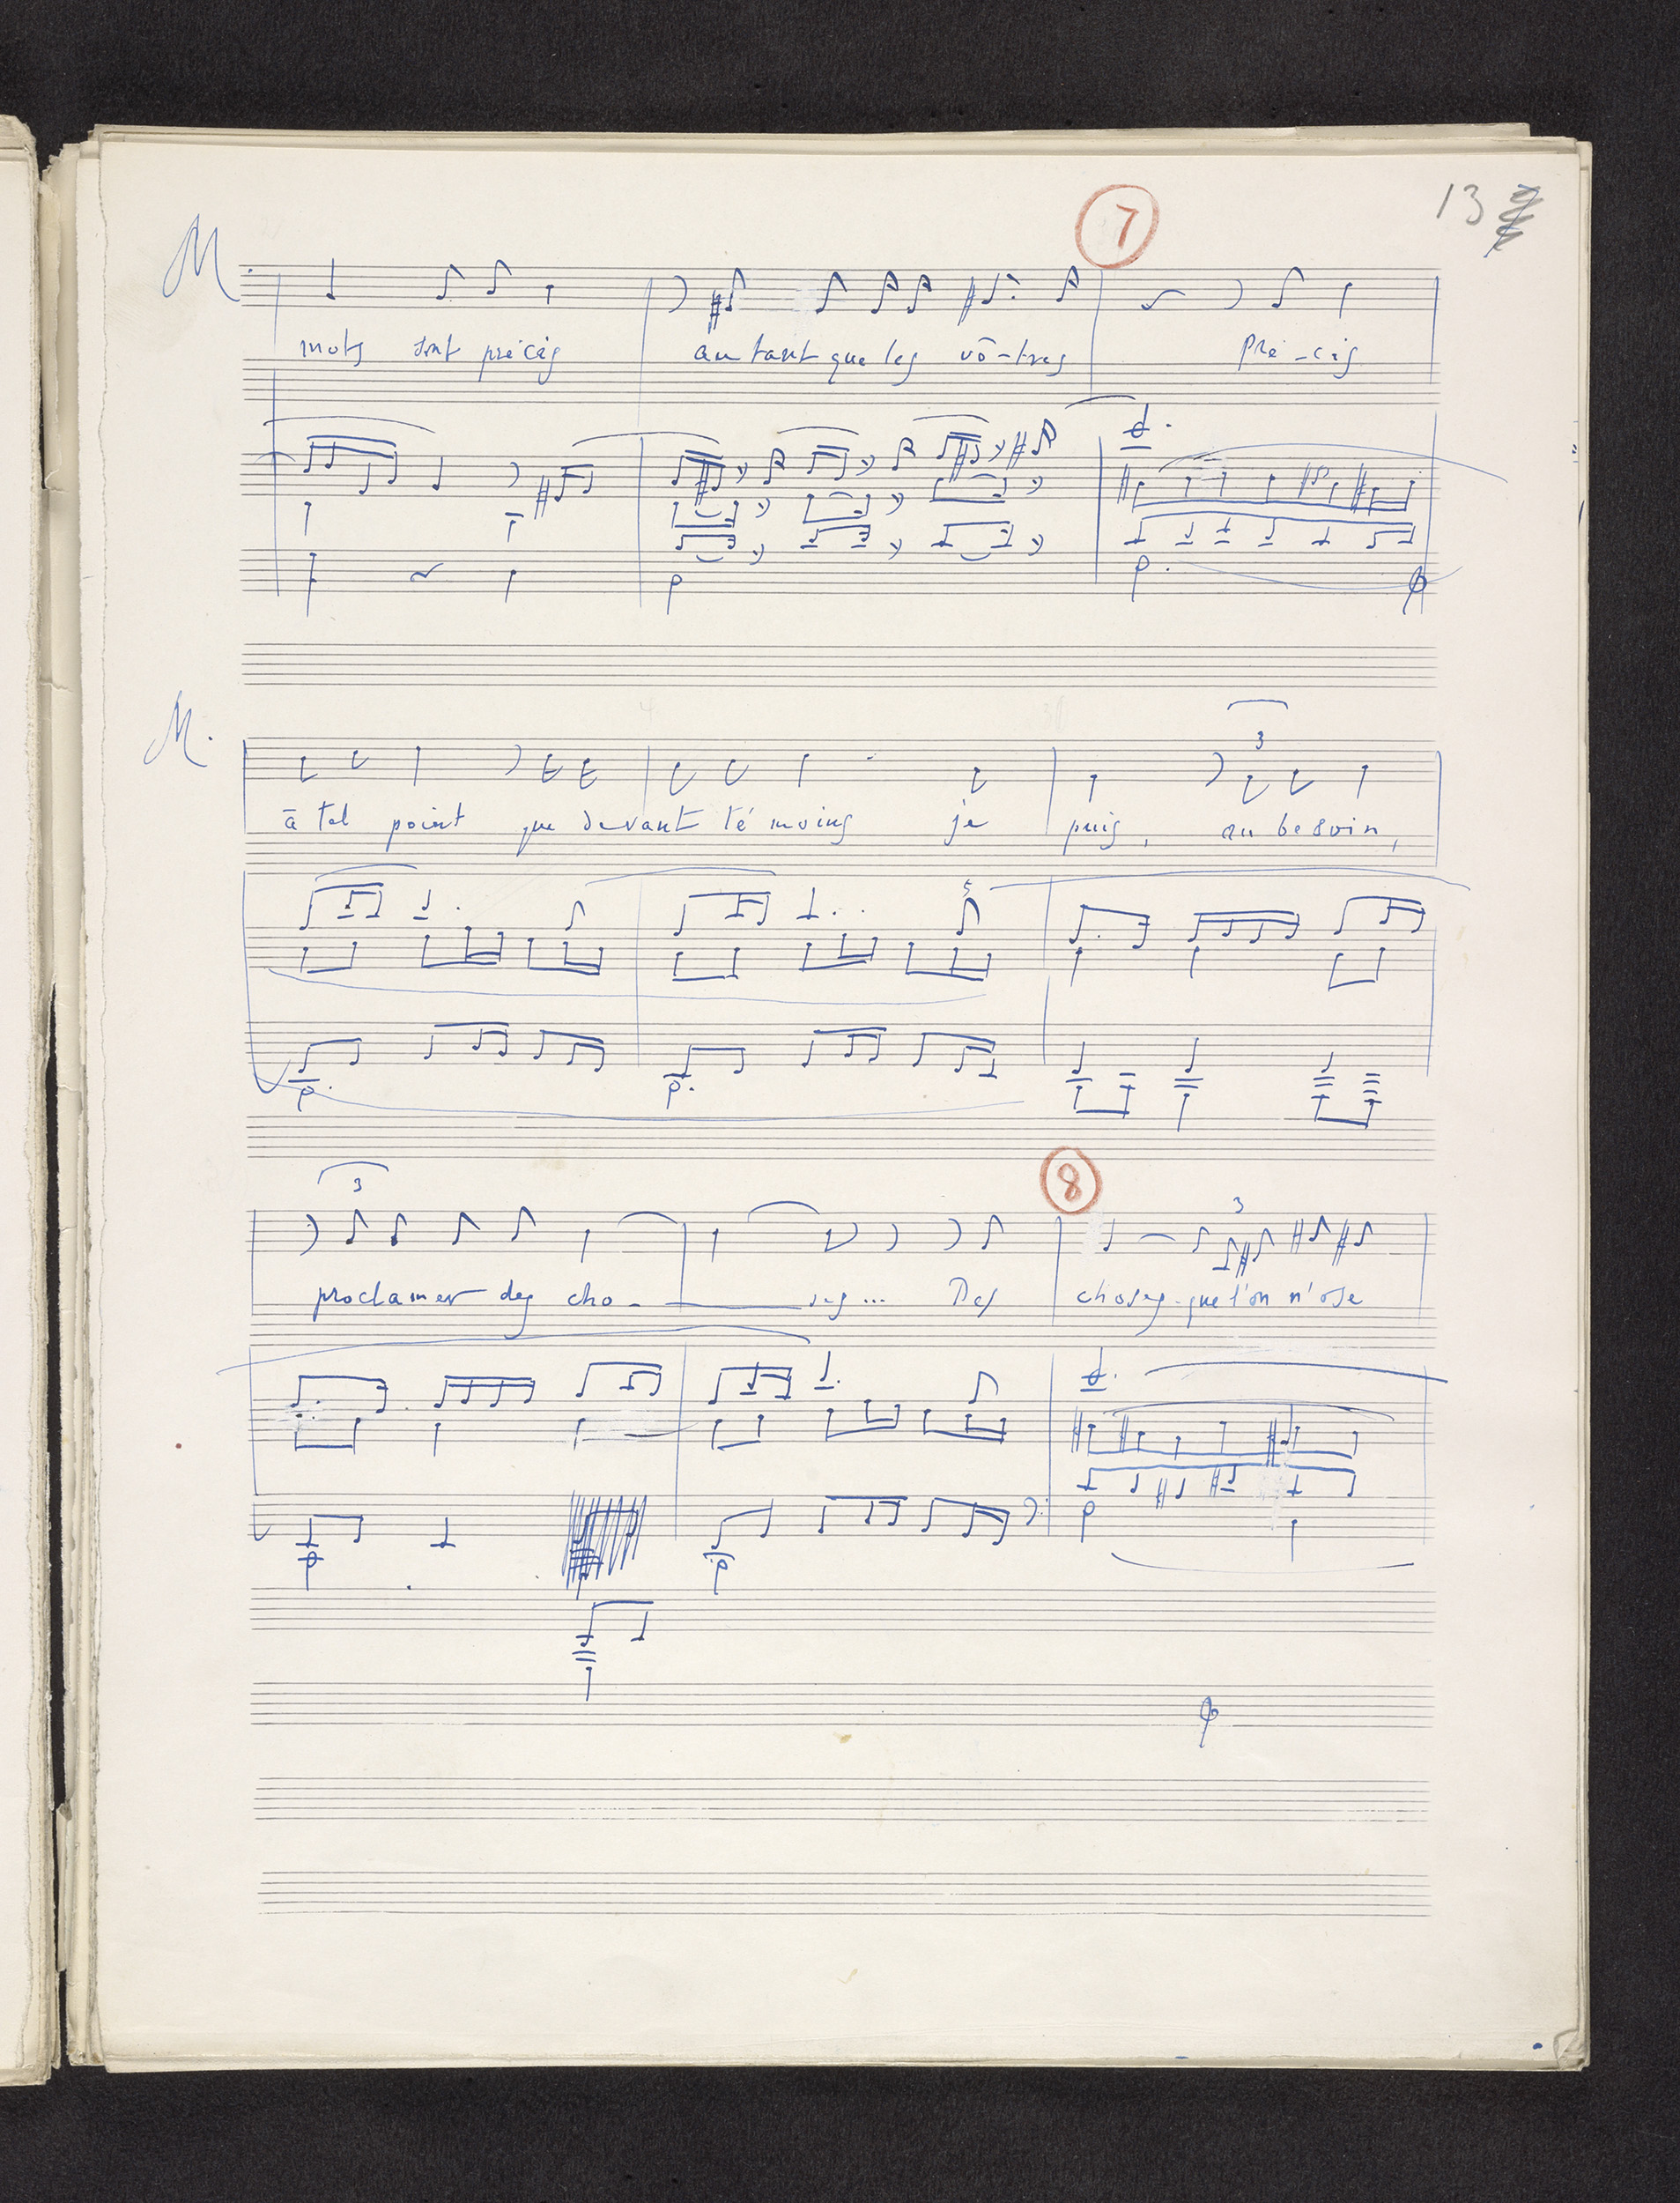 13
7
M.
mots sont précis autant que les vô-tres Pré-cis
M.
3
à tel point que devant té moins je puis, au besoin,
8
3
3
proclamer des cho - ses... Des choses que l'on n'ose